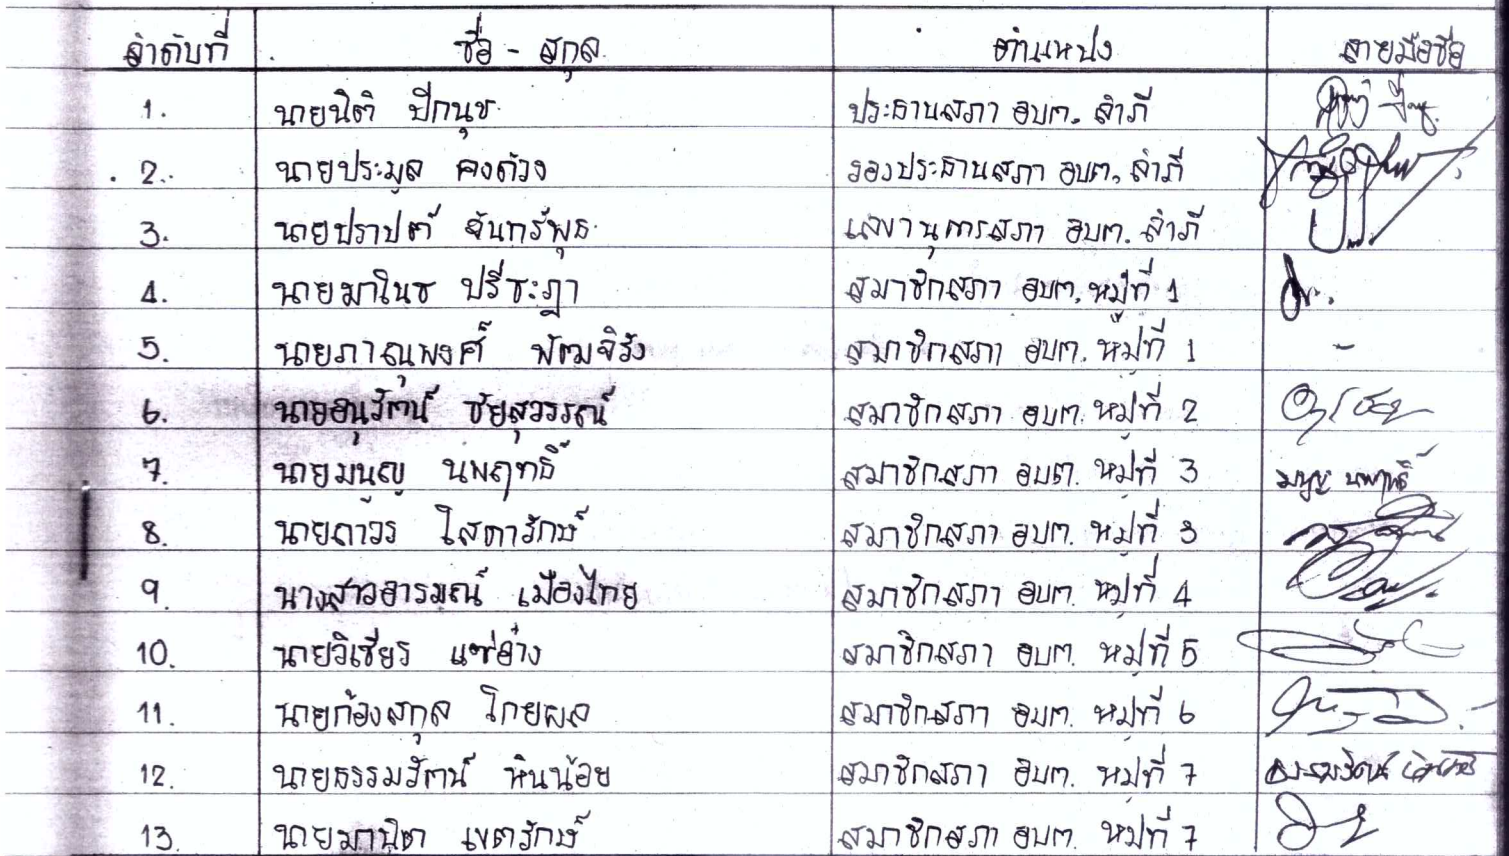 ลำดับที่ ชื่อ - สกุล ตำแหน่ง ลายมือชื่อ
1. นายนิติ ปีกนุช ประธานสภา อบต. ลำภี
2. นายประมูล คงด้วง รองประธานสภา อบต. ลำภี
3. นายปราปต์ จันทร์พุธ เลขานุการสภา อบต. ลำภี
4. นายมาโนช ปรีชะฎา สมาชิกสภา อบต. หมู่ที่ 1
5. นายภาณุพงศ์ พัฒจิรัง สมาชิกสภา อบต. หมู่ที่ 1 -
6. นายอนุรัตน์ ชัยสุวรรณ์ สมาชิกสภา อบต. หมู่ที่ 2
7. นายมนูญ นพฤทธิ์ สมาชิกสภา อบต. หมู่ที่ 3 มนูญ นพฤทธิ์
8. นายถาวร โสตารักษ์ สมาชิกสภา อบต. หมู่ที่ 3
9. นางสาวอารมณ์ เมืองไทย สมาชิกสภา อบต. หมู่ที่ 4
10. นายวิเชียร แซ่อ๋าง สมาชิกสภา อบต. หมู่ที่ 5
11. นายก้องสกุล โกยผล สมาชิกสภา อบต. หมู่ที่ 6
12. นายธรรมรัตน์ หินน้อย สมาชิกสภา อบต. หมู่ที่ 7
13. นายมานิต เขตรักษ์ สมาชิกสภา อบต. หมู่ที่ 7